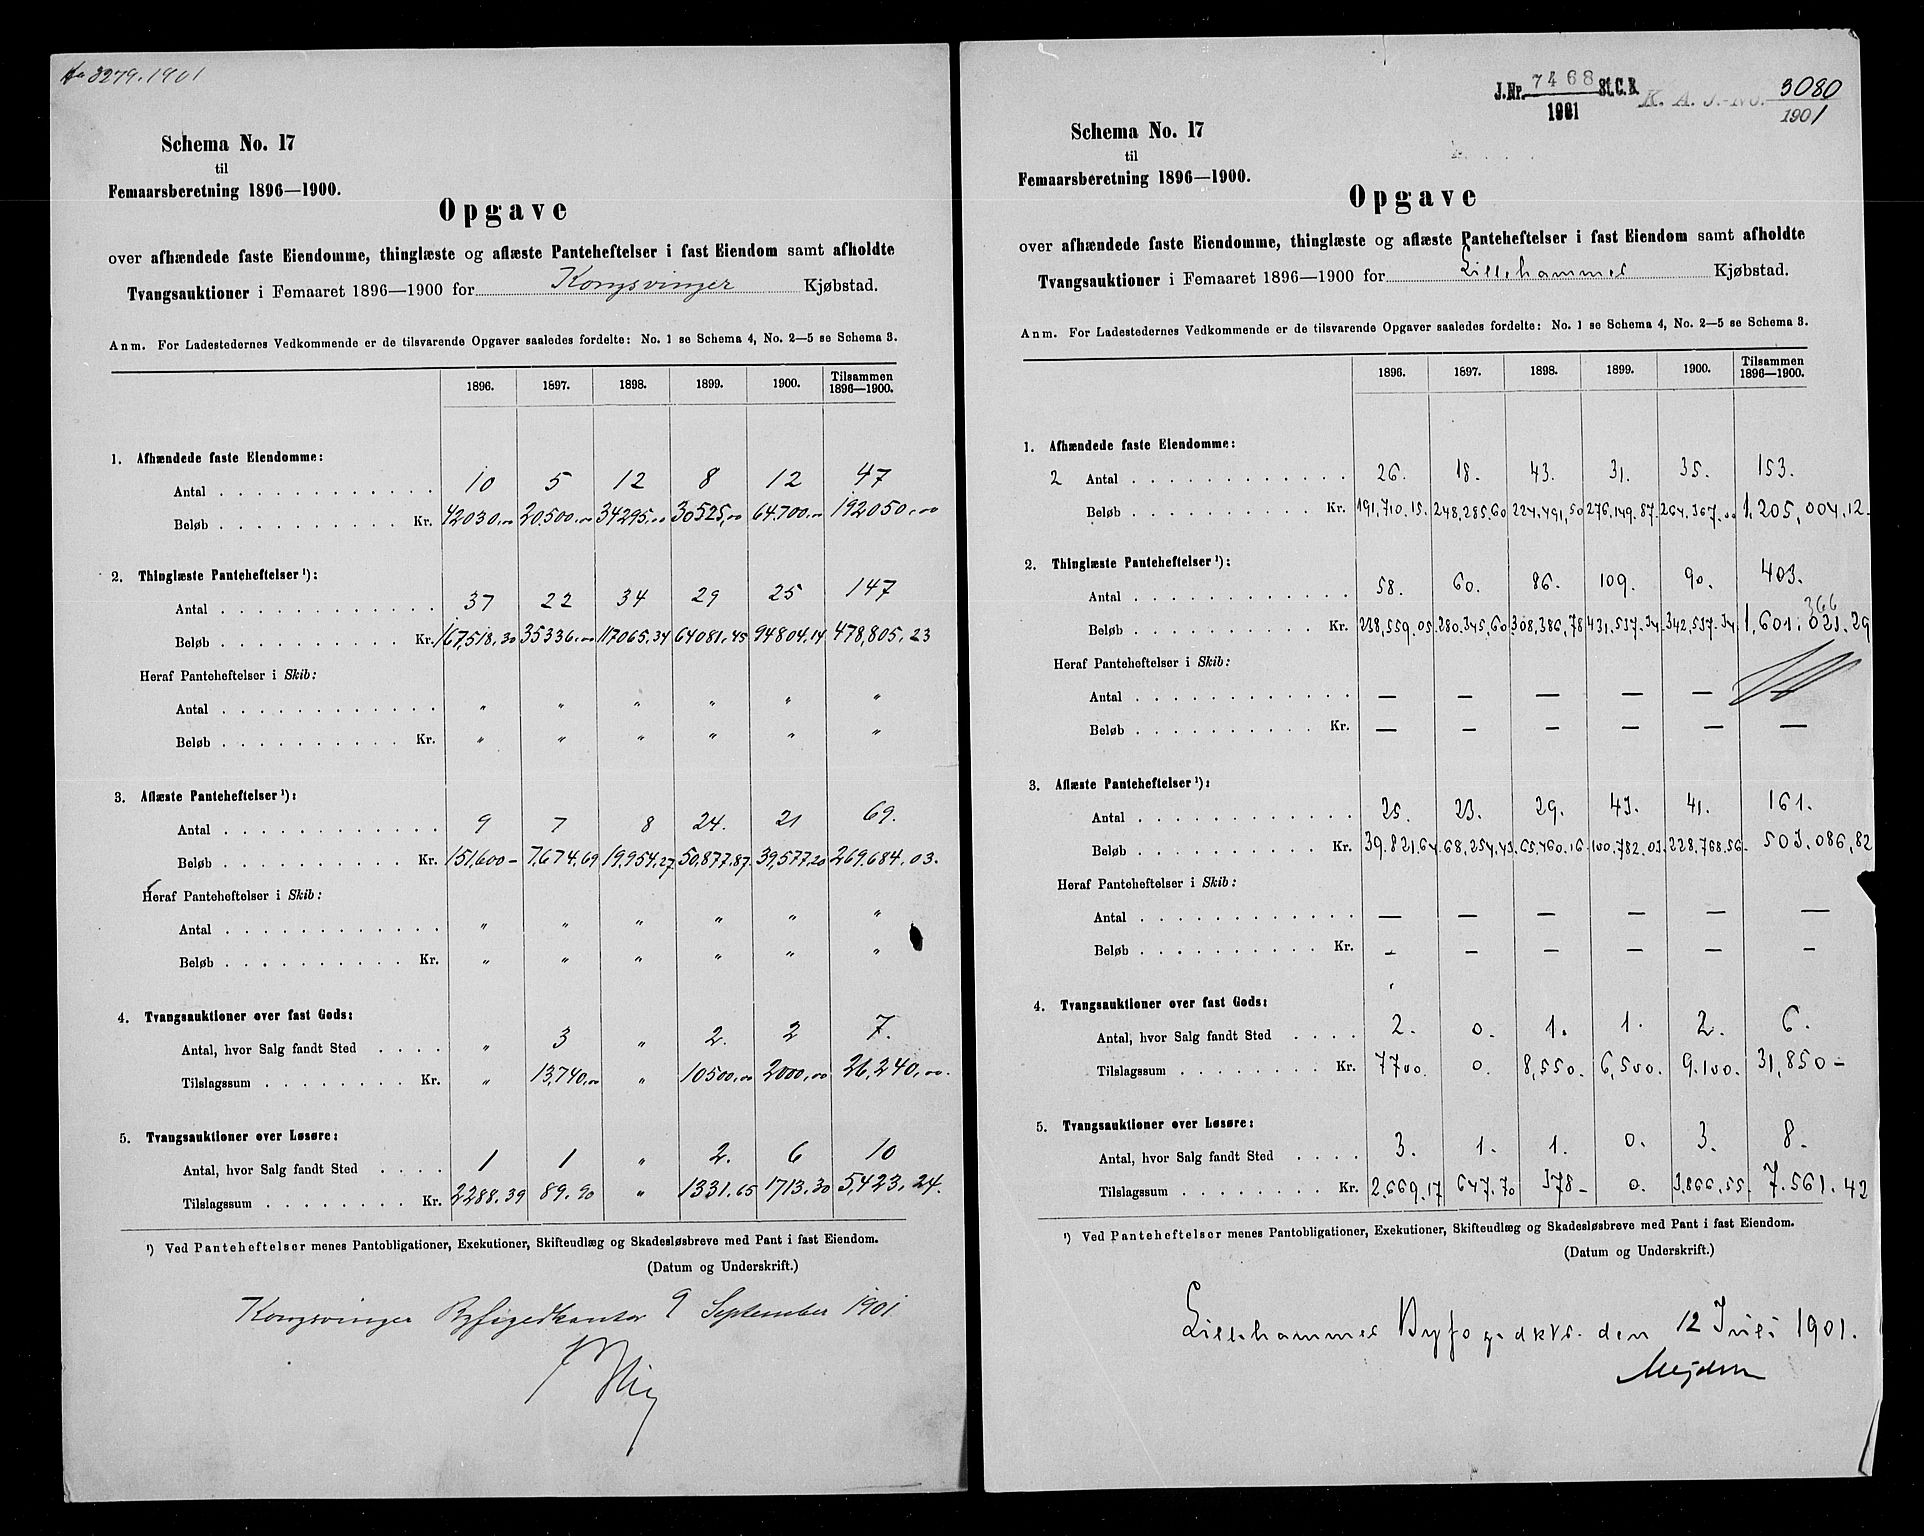 No 3279.1901
Schema No. 17
til
Femaarsberetning 1896—1900.
Opgave
over afhændede faste Eiendomme, thinglæste og aflæste Panteheftelser i fast Eiendom samt afholdte
Tvangsauktioner i Femaaret 1896—1900 for Kongsvinger Kjøbstad.
Anm. For Ladestedernes Vedkommende er de tilsvarende Opgaver saaledes fordelte: No. 1 se Schema 4, No. 2—5 se Schema 3.
1896. 1897. 1898. 1899. 1900. Tilsammen 1896—1900.
1. Afhændede faste Eiendomme:
Antal 10 5 12 8 12 47
Beløb Kr. 42030,00 20,500.00 34295.00 30525,00 64.700.00 192050.00
2. Thinglæste Panteheftelser ¹):
Antal 37 22 34 29 25 147
Beløb Kr. 167,518.30 35336.00 117065.34 64081.45 94804.14 478,805.23
Heraf Panteheftelser i Skib:
Antal " " " " " "
Beløb Kr. " " " " " "
3. Aflæste Panteheftelser ¹):
Antal 9 7 8 24. 21 69.
Beløb Kr. 151,600- 7,674.69 19,954.27. 50,877.87. 39,577.20 269.684.03.
Heraf Panteheftelser i Skib:
Antal " " " " " "
Beløb Kr. " " " " " "
4. Tvangsauktioner over fast Gods:
Antal, hvor Salg fandt Sted " 3 " 2. 2 7.
Tilslagssum Kr. " 13,740,00 " 10500,00 2000,00 26,240,00.
5. Tvangsauktioner over Løsøre:
Antal, hvor Salg fandt Sted 1 1 " 2. 6 10
Tilslagssum Kr. 2288.39 89.90 " 1331.65 1713.30 5,423.24.
¹) Ved Panteheftelser menes Pantobligationer, Exekutioner, Skifteudlæg og Skadesløsbreve med Pant i fast Eiendom.
(Datum og Underskrift.)
Kongsvinger Byfogedkontor 9 September 1901
J.Nr. 7468 St.C.B.
1901
K. A. J.-No. 3080
1901
Schema No. 17
til
Femaarsberetning 1896—1900.
Opgave
over afhændede faste Eiendomme, thinglæste og aflæste Panteheftelser i fast Eiendom samt afholdte
Tvangsauktioner i Femaaret 1896—1900 for Lillehammer Kjøbstad.
Anm. For Ladestedernes Vedkommende er de tilsvarende Opgaver saaledes fordelte: No. 1 se Schema 4, No. 2—5 se Schema 3.
1896. 1897. 1898. 1899. 1900. Tilsammen 1896—1900.
1. Afhændede faste Eiendomme:
2 Antal 26. 18. 43. 31. 35. 153.
Beløb Kr. 191,710.15. 248,285.60 224,491,50 276,149.87. 264.367.00 1,205,004.12-
2. Thinglæste Panteheftelser ¹):
Antal 58. 60. 86. 109. 90. 403.
366
Beløb Kr. 238,559.05. 280.345,60 308,386,78 431,537.34. 342,537.34. 1,601.021.29
Heraf Panteheftelser i Skib:
Antal — — — — —
Beløb Kr. — — — — — —
3. Aflæste Panteheftelser ¹):
Antal 25. 23. 29. 43. 41. 161.
Beløb Kr. 39.821.64 68,254,43 65,460.16 100,782.03 228,768.56. 503.086,82
Heraf Panteheftelser i Skib:
Antal — — — — — —
Beløb Kr. — — — — — —
4. Tvangsauktioner over fast Gods:
Antal, hvor Salg fandt Sted 2. 0. 1. 1. 2. 6.
Tilslagssum Kr. 7700. 0. 8,550. 6,500. 9.100. 31,850-
5. Tvangsauktioner over Løsøre:
Antal, hvor Salg fandt Sted 3. 1. 1. 0. 3. 8.
Tilslagssum Kr. 2.669.17 647.70 378- 0. 3,866,55. 7.561.42
¹) Ved Panteheftelser menes Pantobligationer, Exekutioner, Skifteudlæg og Skadesløsbreve med Pant i fast Eiendom.
(Datum og Underskrift.)
Lillehammer Byfogdktr. den 12 Juli 1901.